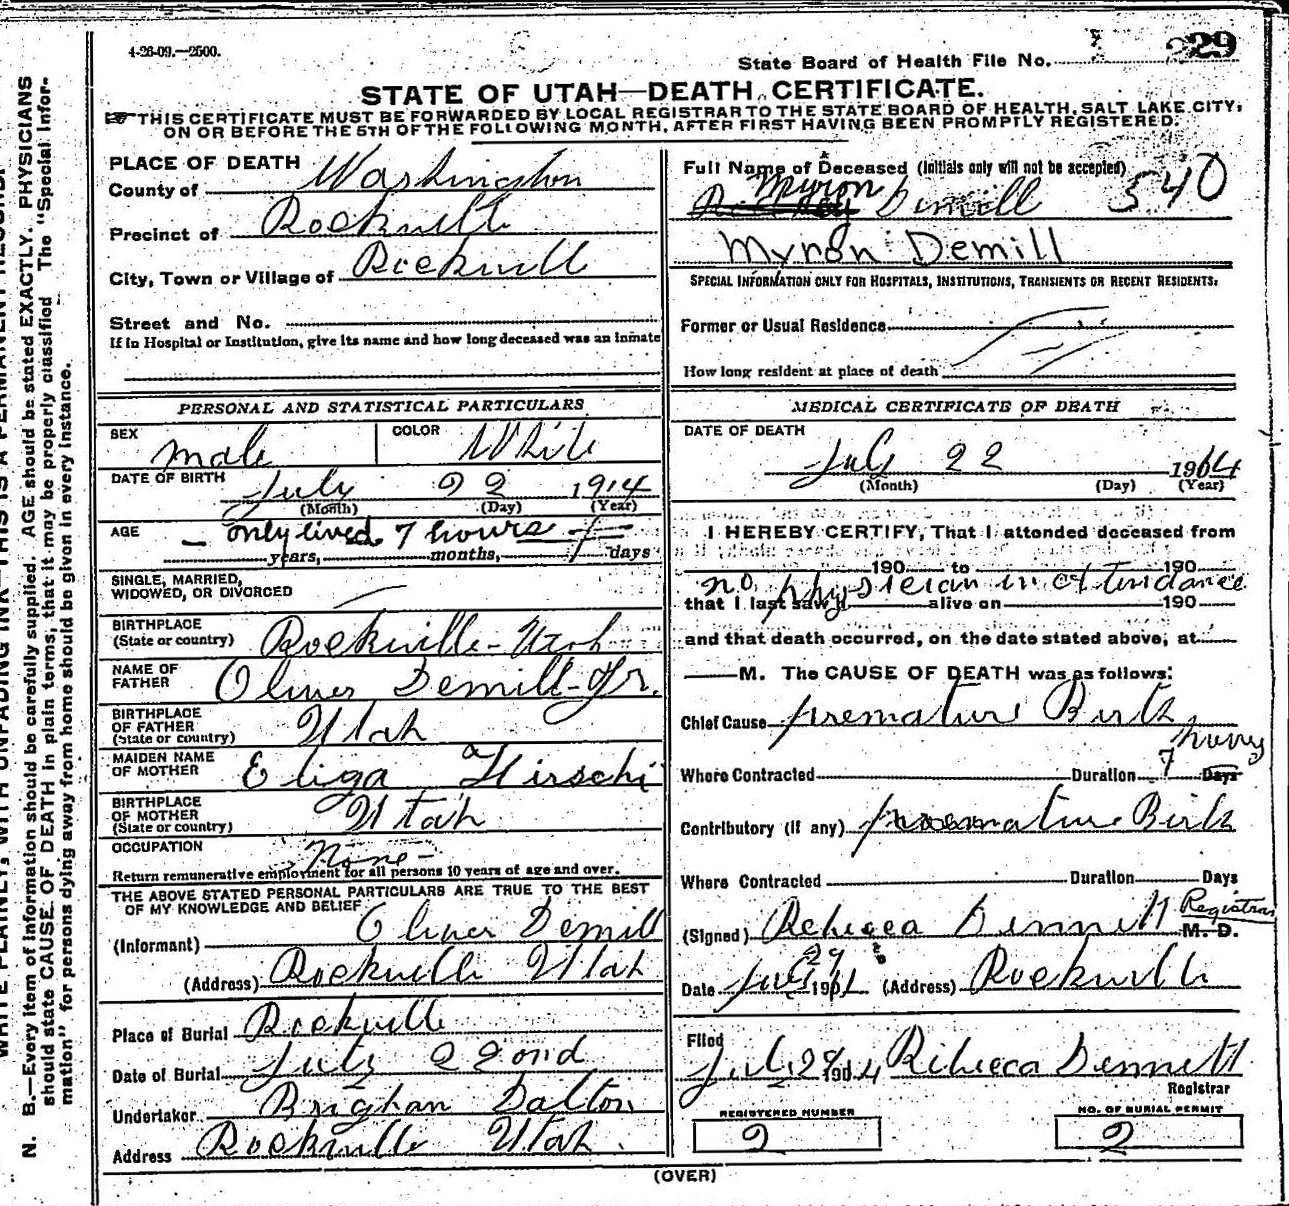 4-26-09.—2500.
State Board of Health File No. 29
STATE OF UTAH—DEATH CERTIFICATE.
THIS CERTIFICATE MUST BE FORWARDED BY LOCAL REGISTRAR TO THE STATE BOARD OF HEALTH, SALT LAKE CITY,
ON OR BEFORE THE 5TH OF THE FOLLOWING MONTH, AFTER FIRST HAVING BEEN PROMPTLY REGISTERED.
PLACE OF DEATH
County of Washington
Precinct of Rockville
City, Town or Village of Rockville
Street and No.
If in Hospital or Institution, give its name and how long deceased was an inmate
Full Name of Deceased (Initials only will not be accepted)
Myron Demill 540
Myron Demill
SPECIAL INFORMATION ONLY FOR HOSPITALS, INSTITUTIONS, TRANSIENTS OR RECENT RESIDENTS:
Former or Usual Residence
How long resident at place of death
PERSONAL AND STATISTICAL PARTICULARS
SEX male COLOR White
DATE OF BIRTH July 22 1914
(Month) (Day) (Year)
AGE — only lived 7 hours
years, months, days
SINGLE, MARRIED,
WIDOWED, OR DIVORCED
BIRTHPLACE
(State or country) Rockville - Utah
NAME OF
FATHER Oliver Demill - Jr.
BIRTHPLACE
OF FATHER
(State or country) Utah
MAIDEN NAME
OF MOTHER Eliza Hirschi
BIRTHPLACE
OF MOTHER
(State or country) Utah
OCCUPATION None -
Return remunerative employment for all persons 10 years of age and over.
THE ABOVE STATED PERSONAL PARTICULARS ARE TRUE TO THE BEST
OF MY KNOWLEDGE AND BELIEF
(Informant) Oliver Demill
(Address) Rockville Utah
Place of Burial Rockville
Date of Burial July 22ond
Undertaker Brighan Dalton
Address Rockville Utah.
MEDICAL CERTIFICATE OF DEATH
DATE OF DEATH
July 22 1914
(Month) (Day) (Year)
I HEREBY CERTIFY, That I attended deceased from
190 to 190
no physician in attendance
that I last saw h alive on 190
and that death occurred, on the date stated above, at
M. The CAUSE OF DEATH was as follows:
Chief Cause premature Birth
Where Contracted Duration 7 hours Days
Contributory (if any) premature Birth
Where Contracted Duration Days
(Signed) Rebecca Dennett Registrar M. D.
Date July 29 191 (Address) Rockville
Filed
July 29 1904 Rebecca Dennett
Registrar
REGISTERED NUMBER
2
NO. OF BURIAL PERMIT
2
(OVER)
N. B.—Every item of information should be carefully supplied. AGE should be stated EXACTLY. PHYSICIANS
should state CAUSE OF DEATH in plain terms, that it may be properly classified The "Special Infor-
mation" for persons dying away from home should be given in every instance.